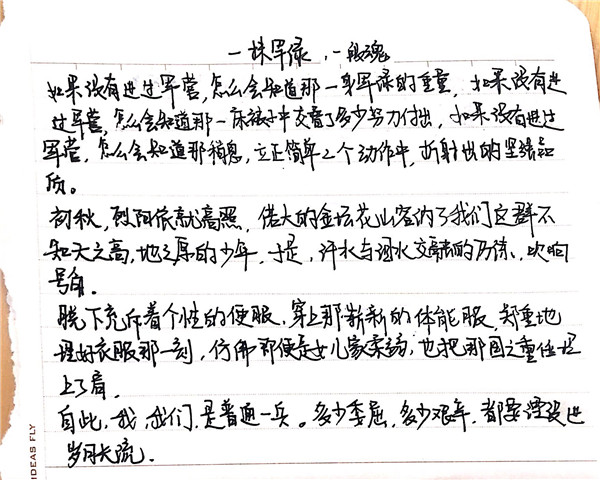 一抹军绿，一般魂
如果没有进过军营，怎么会知道那一身军绿的重量，如果没有进
过军营，怎么会知道那一床被子中交叠了多少努力付出，如果没有进过
军营，怎么会知道那稍息，立正简单2个动作中，折射出的坚韧品
质。
初秋，烈阳依就高照，偌大的金坛花山容纳了我们这群不
知天之高，地之厚的少年，于是，汗水与泪水交融的历练、吹响
号角.
脱下充斥着个性的便服，穿上那崭新的体能服，郑重地
理好衣服那一刻，仿佛即便是女儿家柔弱，也把那国之重任担
上了肩.
自此，我，我们，是普通一兵。多少委屈，多少艰辛，都要湮没进
岁月长流.
IDEAS FLY